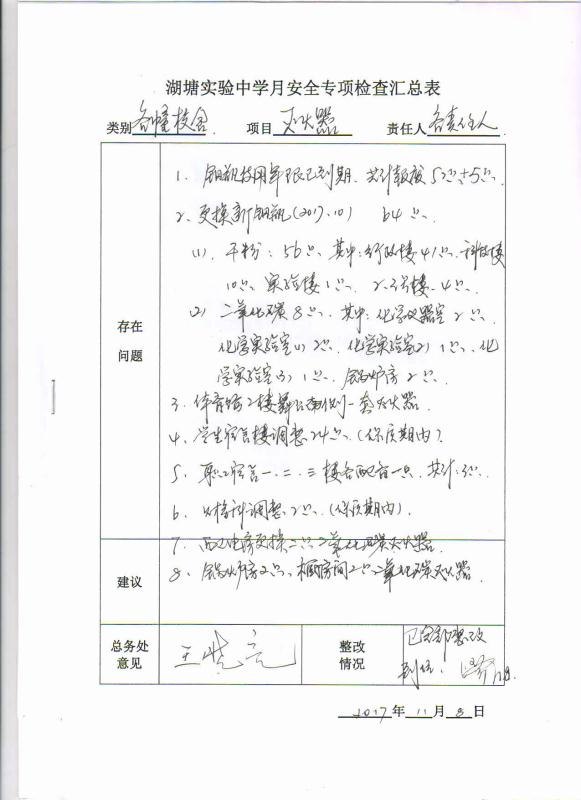 湖塘实验中学月安全专项检查汇总表
类别 各幢校舍 项目 灭火器 责任人 各责任人
存在
问题
1. 钢瓶技用年限已到期. 共计报废52只+5只.
2. 更换新钢瓶(2017.10) 64只.
(1). 干粉: 56只. 其中: 行政楼41只. 科技楼
10只. 实验楼1只. 2.3号楼4只.
(2) 二氧化碳8只. 其中: 化学仪器室2只.
化学实验室(1)2只. 化学实验室(2) 1只. 化
学实验室(3) 1只. 锅炉房2只.
3. 体育馆2楼舞台一套灭火器.
4. 学生宿舍楼调整24只. (保质期内).
5. 职工宿舍一.二.三楼各配备一只. 共计3只.
6. 调整2只. (保质期内).
7. 配电房更换二只二氧化碳灭火器.
建议
8. 锅炉房2只. 二氧化碳灭火器.
总务处
意见
整改
情况
已全部整改
到位.
2017年11月8日